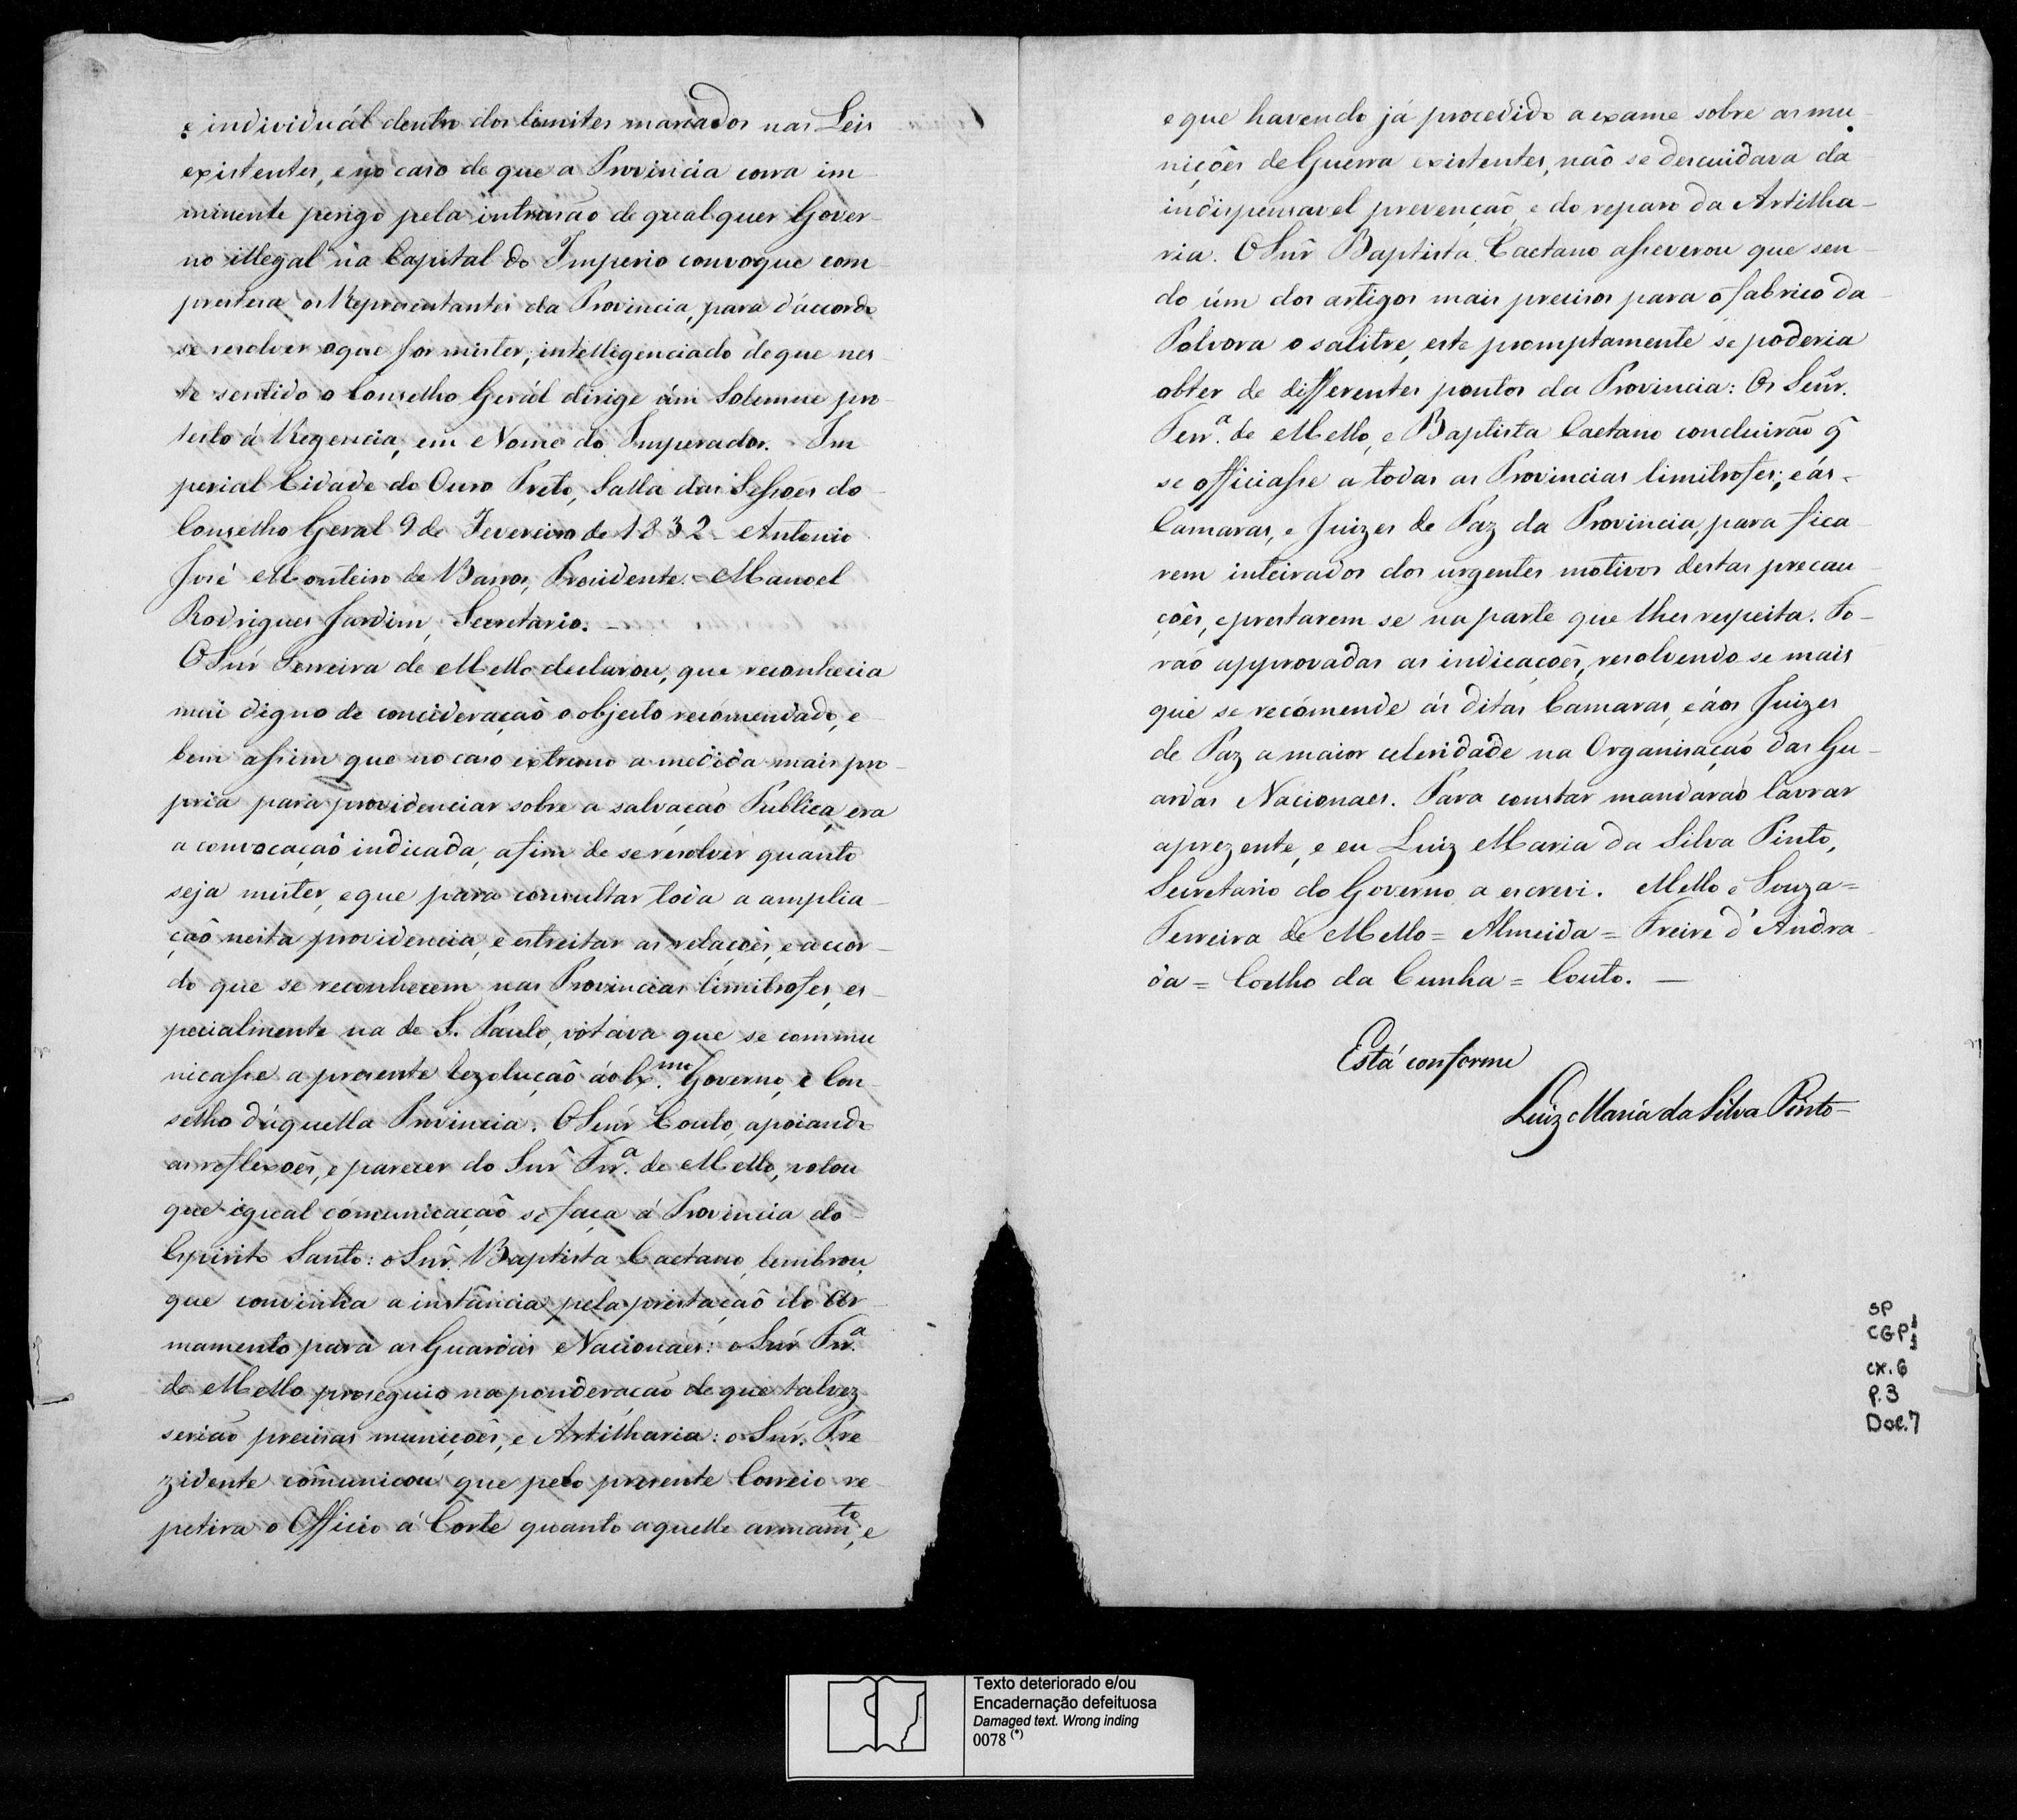 e individuál dentro dos limites marcados nas Leis
existentes, e no caso de que a Provincia corra im-
minente perigo pela intrusão de qualquer Gover-
no illegal na Capital do Imperio convoque com
presteza os Representantes da Provincia, para d'accordo
se resolver o que for mister, intelligenciado de que nes-
te sentido o Conselho Gerál dirige úm Solemne pro-
testo á Regencia, em Nome do Imperador. Im-
perial Cidade do Ouro Preto, Salla das Sessoes do
Conselho Geral 9 de Fevereiro de 1832 - Antonio
José Monteiro de Barros, Presidente. = Manoel
Rodrigues Jardim, Secretario. -
O Snr Ferreira de Mello declarou, que reconhecia
mui digno de concideração o objecto recomendado, e
bem assim que no caso extremo a medida mais pro-
pria para providenciar sobre a salvação Publica, era
a convocação indicada, afim de se resolver quanto
seja mister, e que para consultar toda a amplia-
ção nesta providencia, e estreitar as relações, e accor-
do que se reconhecem nas Provincias limitrofes, es-
pecialmente na de S. Paulo, votáva que se commu-
nicasse a presente rezolução áo Ex.mo Governo, e Con-
selho d'aquella Provincia. O Snr Couto, apoiando
as reflexoẽs, e parecer do Snr Frr.a de Mello, votou
que igual comunicação se faça á Provincia do
Espirito Santo: o Snr. Baptista Caetano, lembrou,
que convinha a instância pela prestação do Ar-
mamento para as Guardas Nacionaes: o Snr Frr.a
de Mello proseguio na ponderação de que talvez
serião precisas munições, e Artilharia: o Snr. Pre-
zidente cômunicou que pelo presente Correio re-
petira o Officio á Corte quanto aquelle armam.to, e
e que havendo já procedido a exame sobre as mu-
nições de Guerra existentes, não se descuidara da
indispensavel prevenção, e do reparo da Artilha-
ria. O Snr Baptista Caetano asseverou que sen-
do úm dos artigos mais precisos para o fabrico da
Polvora o salitre, este promptamente se poderia
obter de differentes pontos da Provincia: Os Senr.s
Ferr.a de Mello, e Baptista Caetano concluirão q̃
se officiasse a todas as Provincias limitrofes; e ás
Camaras, e Juizes de Paz da Provincia, para fica-
rem inteirados dos urgentes motivos destas precau-
ções, e prestarem se na parte que lhes respeita. Fo-
rão approvadas as indicações, resolvendo se mais
que se recómende ás ditas Camaras, e áos Juizes
de Paz a maior celeridade na Organisação das Gu-
ardas Nacionaes. Para constar mandarão lavrar
a prezente, e eu Luiz Maria da Silva Pinto,
Secretario do Governo a escrevi. Mello e Souza =
Ferreira de Mello = Almeida = Freire d'Andra-
da = Coelho da Cunha = Couto. -
Está conforme
Luiz Maria da Silva Pinto -
SP
CGP 1
1
cx. 6
P. 3
Doc. 7
Texto deteriorado e/ou
Encadernação defeituosa
Damaged text. Wrong inding
0078 (*)